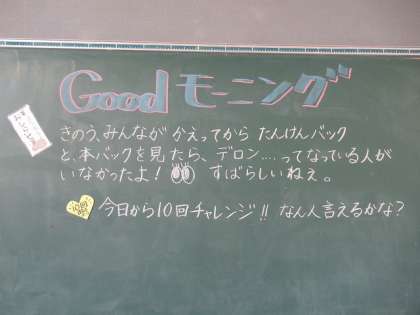 Good モーニング
きのう、みんなが かえってから たんけんバック
と、本バックを見たら、デロン....ってなっている人が
いなかったよ! すばらしいねぇ。
今日から10回チャレンジ!! なん人言えるかな?